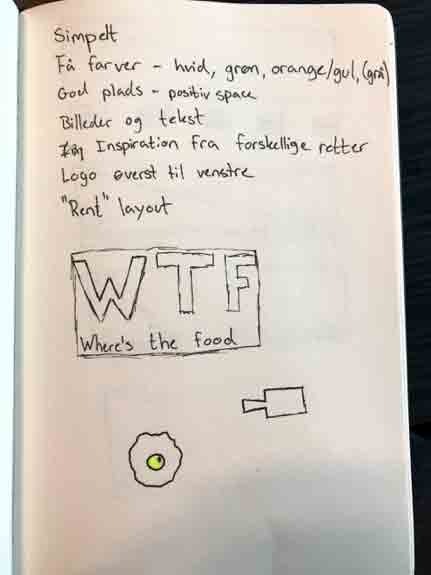 Simpelt
Få farver - hvid, grøn, orange/gul, (grå)
God plads - positiv space
Billeder og tekst
Inspiration fra forskellige retter
Logo øverst til venstre
"Rent" layout
WTF
Where's the food